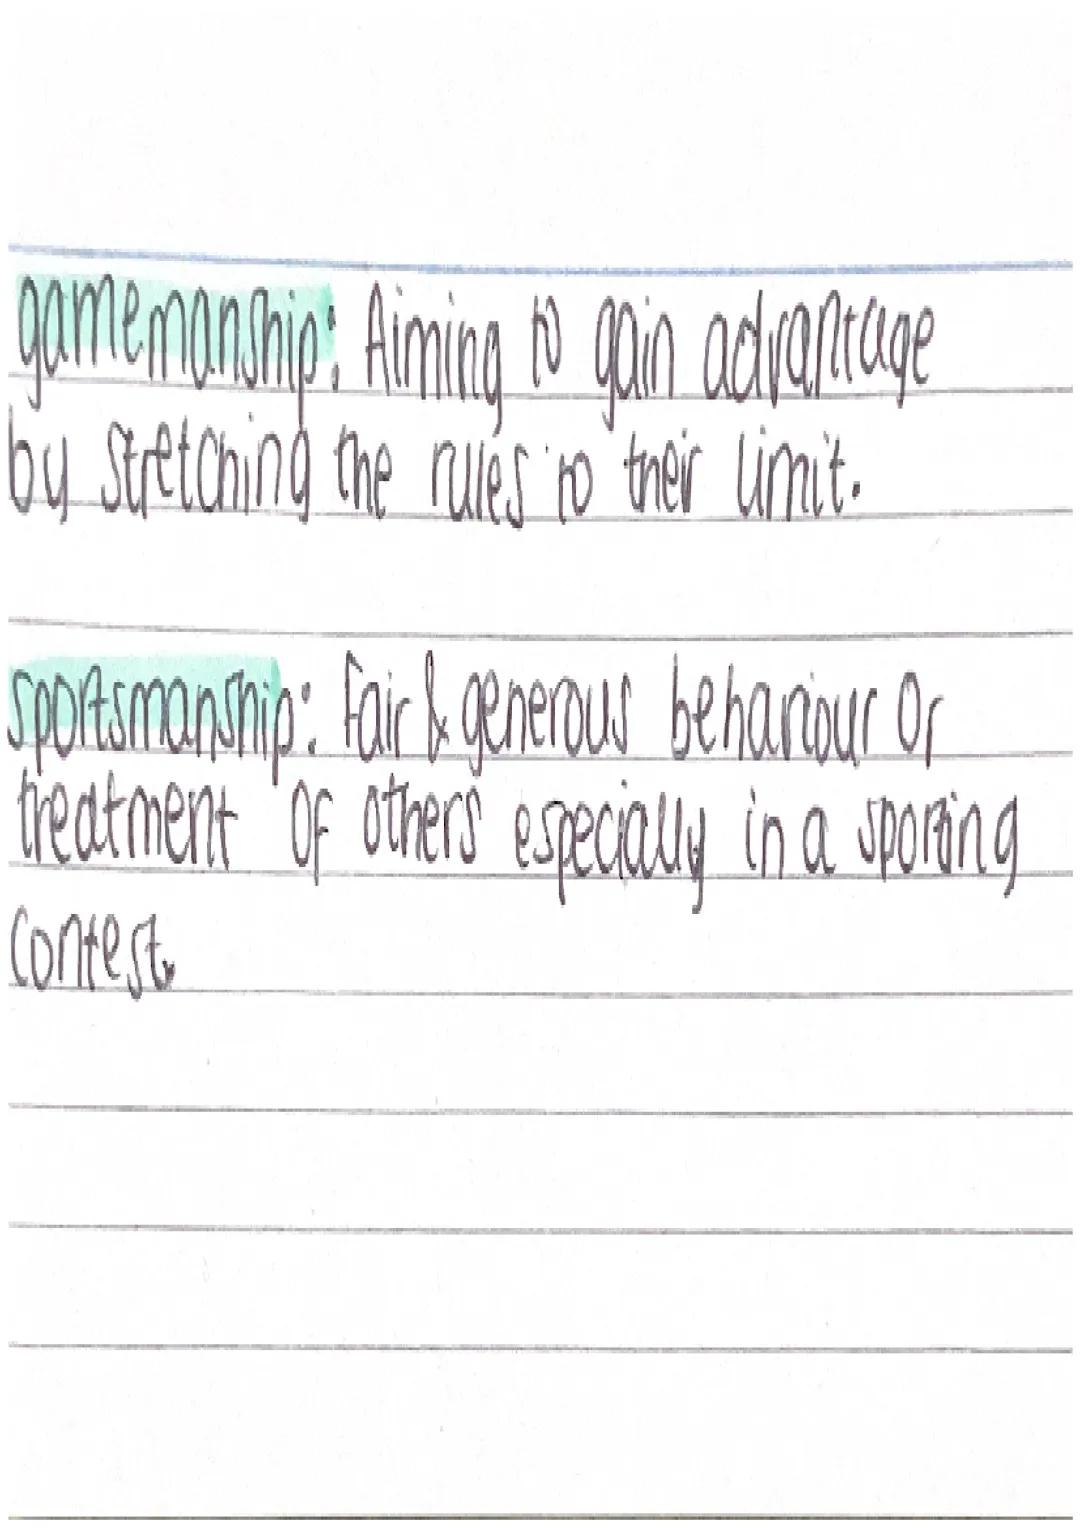 gamemanship: Aiming to gain advantage
by stretching the rules to their limit.
sportsmanship: Fair & generous behaviour or
treatment of others especially in a sporting
contest.